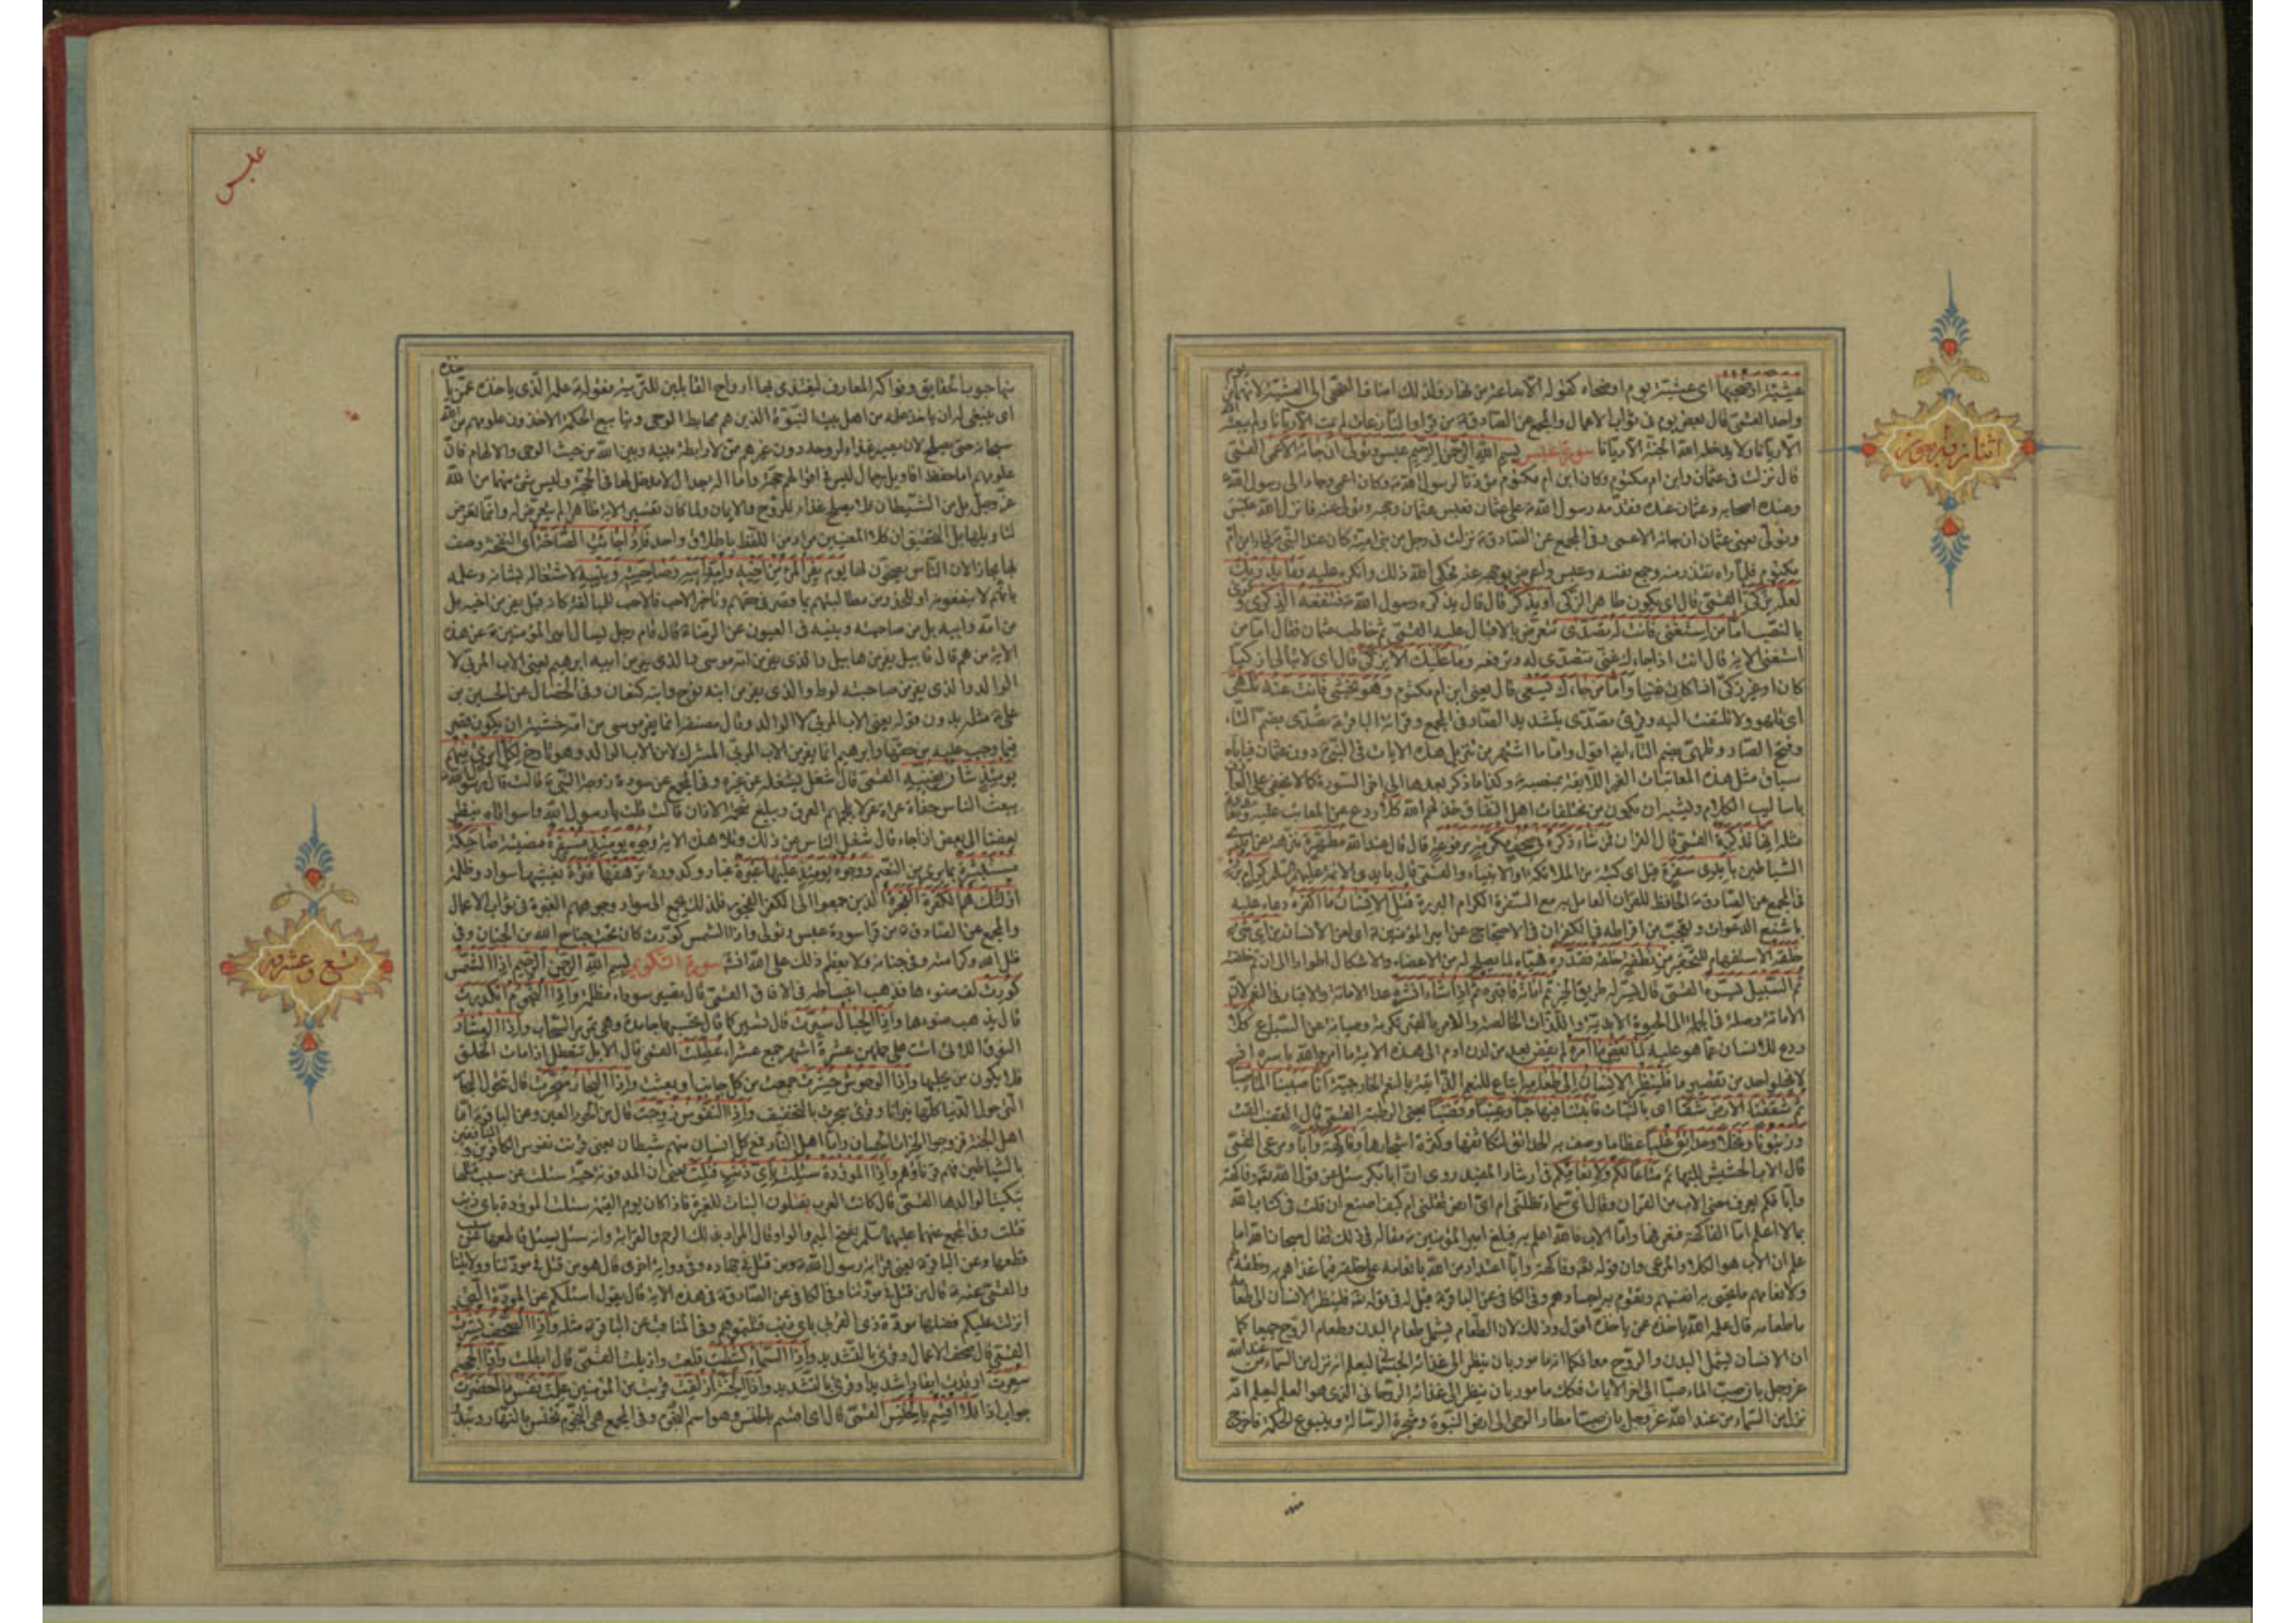 اثنان واربعون
عشيّة او ضحيها اى عشيّة يوم او ضحاه كقوله الا ساعة من نهار ولذلك اضاف الضحى الى العشيّة لانهما من
واحد القمّى قال بعض يوم فى ثواب الاعمال والمجمع عن الصادق من قرأ والنازعات لم يمت الا ريّانا ولم يبعثه
الا ريّانا ولا يدخله الله الجنّة الا ريّانا سورة عبس بسم الله الرحمن الرحيم عبس وتولى ان جاءه الاعمى القمّى
قال نزلت فى عثمان وابن ام مكتوم وكان ابن ام مكتوم مؤذنا لرسول الله وكان اعمى وجاء الى رسول الله
وعنده اصحابه وعثمان عنده فقدمه رسول الله على عثمان فعبس عثمان وجهه وتولى عنه فانزل الله عبس
وتولى يعنى عثمان ان جاءه الاعمى وفى المجمع عن الصادق نزلت فى رجل من بنى امية كان عند النبى فجاء ابن ام
مكتوم فلما راه تقذر منه وجمع نفسه وعبس واعرض بوجهه عنه فحكى الله ذلك وانكره عليه وما يدريك
لعله يزكى القمّى قال اى يكون طاهرا ازكى او يذكر قال قال يذكره رسول الله فتنفعه الذكرى و
بالنصب اما من استغنى فانت له تصدى تتعرض بالاقبال عليه القمّى ثم خاطب عثمان فقال اما من
استغنى الاية قال انت اذا جاءك غنى تتصدى له وترفعه وما عليك الا يزكى قال اى لا تبالى ازكيا
كان او غير زكى اذا كان غنيا واما من جاءك يسعى قال يعنى ابن ام مكتوم وهو يخشى فانت عنه تلهى
اى تلهو ولا تلتفت اليه وقرئ تصدى بتشديد الصاد وفى المجمع وقراءة الباقر تصدى بضم التاء
وفتح الصاد وتلهى بضم التاء ايضا اقول واما ما اشتهر من تنزيل هذه الايات فى النبى دون عثمان فياباه
سياق مثل هذه المعاتبات الغير اللايقة بمنصبه وكذا ما ذكر بعدها الى اخر السورة كما لا يخفى على العارف
باساليب الكلام ويشبه ان يكون من مختلقات اهل النفاق خذلهم الله كلا ردع عن المعاتب عليه
مثله انها تذكرة القمّى قال القران فمن شاء ذكره فى صحف مكرمة مرفوعة قال قال عند الله مطهرة منزهة عن ايدى
الشياطين بايدى سفرة قيل اى كتبة من الملائكة او الانبياء والقمّى قال بايدى الائمة عليهم السلم كرام بررة
فى المجمع عن الصادق الحافظ للقران العامل به مع السفرة الكرام البررة قتل الانسان ما اكفره دعاء عليه
باشنع الدعوات وتعجب من افراطه فى الكفران فى الاحتجاج عن امير المؤمنين اى لعن الانسان من اى شىء
خلقه الاستفهام للتحقير من نطفة خلقه فقدره فهيّاه لما يصلح له من الاعضاء والاشكال اطوارا الى ان تم خلقته
ثم السبيل يسره القمّى قال يسر له طريق الخير ثم اماته فاقبره ثم اذا شاء انشره عد الاماتة والاقبار فى النعم لان
الاماتة وصلة فى الجملة الى الحيوة الابدية واللذات الخالصة والامر بالقبر تكرمة وصيانة عن السباع كلا
ردع للانسان عما هو عليه لما يقض ما امره لم يقض بعد من لدن ادم الى هذه الاية ما امره الله باسره اذ
لا يخلو احد من تقصير ما فلينظر الانسان الى طعامه اتباع للنعم الذاتية بالنعم الخارجية انا صببنا الماء صبا
ثم شققنا الارض شقا اى بالنبات فانبتنا فيها حبا وعنبا وقضبا يعنى الرطبة القمّى قال القضب القت
وزيتونا ونخلا وحدائق غلبا عظاما وصف به الحدائق لتكاثفها وكثرة اشجارها وفاكهة وابا ومرعى القمّى
قال الاب الحشيش للبهائم متاعا لكم ولانعامكم فى ارشاد المفيد روى ان ابا بكر سئل عن قول الله تعالى وفاكهة
وابا فلم يعرف معنى الاب من القران وقال اى سماء تظلنى ام اى ارض تقلنى ام كيف اصنع ان قلت فى كتاب الله
بما لا اعلم اما الفاكهة فنعرفها واما الاب فالله اعلم به فبلغ امير المؤمنين مقاله فى ذلك فقال سبحان الله اما
علم ان الاب هو الكلاء والمرعى وان قوله تعالى وفاكهة وابا اعتداد من الله بانعامه على خلقه فيما غذاهم به وخلقه لهم
ولانعامهم مما يحيى به انفسهم وتقوم به اجسادهم وفى الكافى عن الباقر قيل له فى قوله تعالى فلينظر الانسان الى طعامه
ما طعامه قال علمه الذى ياخذه عمن ياخذه اقول وذلك لان الطعام يشمل طعام البدن وطعام الروح جميعا كما
ان الانسان يشمل البدن والروح معا فكما انه مامور بان ينظر الى غذائه الجسمانى ليعلم انه نزل من السماء من عند الله
عز وجل بان صب الماء صبا الى اخر الايات فكذلك مامور بان ينظر الى غذائه الروحانى الذى هو العلم ليعلم انه
نزل من السماء من عند الله عز وجل بان صب امطار الوحى الى ارض النبوة وشجرة الرسالة وينبوع الحكمة فاخرج
عبس
تسع وعشرون
منها حبوب الحقايق وفواكه المعارف ليغتذى بها ارواح القابلين للتربية فقوله علمه الذى ياخذه عمن ياخذه
اى ينبغى له ان ياخذ علمه من اهل بيت النبوة الذين هم مهابط الوحى وينابيع الحكمة الاخذون علومهم من الله
سبحانه حتى يصلح لان يصير غذاء لروحه دون غيرهم ممن لا رابطة بينه وبين الله من حيث الوحى والالهام فان
علومهم اما حفظ اقاويل رجال ليس فى اقوالهم حجة واما الة جدال لا مدخل لها فى الحجة وليس شىء منهما من الله
عز وجل بل من الشيطان فلا يصلح غذاء للروح والايمان ولما كان تفسير الاية ظاهرا لم يتعرض له وانما تعرض
لتاويلها بل التحقيق ان كلا المعنيين مراد من اللفظ باطلاق واحد فاذا جاءت الصاخة اى النفخة وصف
بها مجازا لان الناس يصخون لها يوم يفر المرء من اخيه وامه وابيه وصاحبته وبنيه لاشتغاله بشانه وعلمه
بانهم لا ينفعونه او للحذر من مطالبتهم بما قصر فى حقهم وتاخير الاحب فالاحب للمبالغة كانه قيل يفر من اخيه بل
من امه وابيه بل من صاحبته وبنيه فى العيون عن الرضا قال قام رجل يسال امير المؤمنين عن هذه
الاية من هم قال قابيل يفر من هابيل والذى يفر من امه موسى والذى يفر من ابيه ابرهيم يعنى الاب المربى لا
الوالد والذى يفر من صاحبته لوط والذى يفر من ابنه نوح وابنه كنعان وفى الخصال عن الحسين بن
على مثله بدون قوله يعنى الاب المربى لا الوالد وقال مصنفه انما يفر موسى من امه خشية ان يكون قصر
فيما وجب عليه من حقها وابرهيم انما يفر من الاب المربى المشرك لا من الاب الوالد وهو تارخ لكل امرئ منهم
يومئذ شان يغنيه القمّى قال شغل يشغله عن غيره وفى المجمع عن سودة زوجة النبى قالت قال رسول الله
يبعث الناس حفاة عراة غرلا يلجمهم العرق ويبلغ شحمة الاذان قالت قلت يا رسول الله واسواتاه ينظر
بعضنا الى بعض اذا جاء قال شغل الناس عن ذلك وتلا هذه الاية وجوه يومئذ مسفرة مضيئة ضاحكة
مستبشرة بما يرى من النعم ووجوه يومئذ عليها غبرة غبار وكدورة ترهقها قترة تغشيها سواد وظلمة
اولئك هم الكفرة الفجرة الذين جمعوا الى الكفر الفجور فلذلك يجمع الى سواد وجوههم الغبرة فى ثواب الاعمال
والمجمع عن الصادق من قرأ سورة عبس وتولى واذا الشمس كورت كان تحت جناح الله من الجنان وفى
ظل الله وكرامته وفى جنانه ولا يعظم ذلك على الله انشاء سورة التكوير بسم الله الرحمن الرحيم اذا الشمس
كورت لف ضوءها فذهب انبساطه فى الافاق القمّى قال تصير سوداء مظلمة واذا النجوم انكدرت
قال يذهب ضوءها واذا الجبال سيرت قال تسير كما قال تحسبها جامدة وهى تمر مر السحاب واذا العشار
النوق اللاتى اتت على حملهن عشرة اشهر جمع عشراء عطلت القمّى قال الابل تتعطل اذا مات الخلق
فلا يكون من يحلبها واذا الوحوش حشرت جمعت من كل جانب او بعثت واذا البحار سجرت قال تتحول البحار
التى حول الدنيا كلها نيرانا وقرئ سجرت بالتخفيف واذا النفوس زوجت قال من الحور العين وعن الباقر اما
اهل الجنة فزوجوا الخيرات الحسان واما اهل النار فمع كل انسان منهم شيطان يعنى قرنت نفوس الكافرين والمنافقين
بالشياطين فهم قرناؤهم واذا الموؤدة سئلت باى ذنب قتلت يعنى ان المدفونة حية سئلت عن سبب قتلها
تبكيتا لوائدها القمّى قال كانت العرب يقتلون البنات للغيرة فاذا كان يوم القيمة سئلت الموؤدة باى ذنب
قتلت وفى المجمع عنهما عليهما السلم بفتح الميم والواو وقال المراد بذلك الرحم والقرابة وانه يسئل قاطعها عن سبب
قطعها وعن الباقر يعنى قرابة رسول الله ومن قتل فى جهاده وفى رواية اخرى قال هو من قتل فى مودتنا وولايتنا
والقمّى عنه قال من قتل فى مودتنا وفى الكافى عن الصادق فى هذه الاية قال يقول اسئلكم عن المودة التى
انزلت عليكم فضلها مودة ذى القربى باى ذنب قتلتموهم وفى المناقب عن الباقر مثله واذا الصحف نشرت
القمّى قال صحف الاعمال وقرئ بالتشديد واذا السماء كشطت قلعت وازيلت القمّى قال ابطلت واذا الجحيم
سعرت اوقدت ايقادا شديدا وقرئ بالتشديد واذا الجنة ازلفت قربت من المؤمنين علمت نفس ما احضرت
جواب اذا فلا اقسم بالخنس القمّى قال اى اقسم بالخنس وهو اسم النجوم وفى المجمع هى النجوم تخنس بالنهار وتبدو